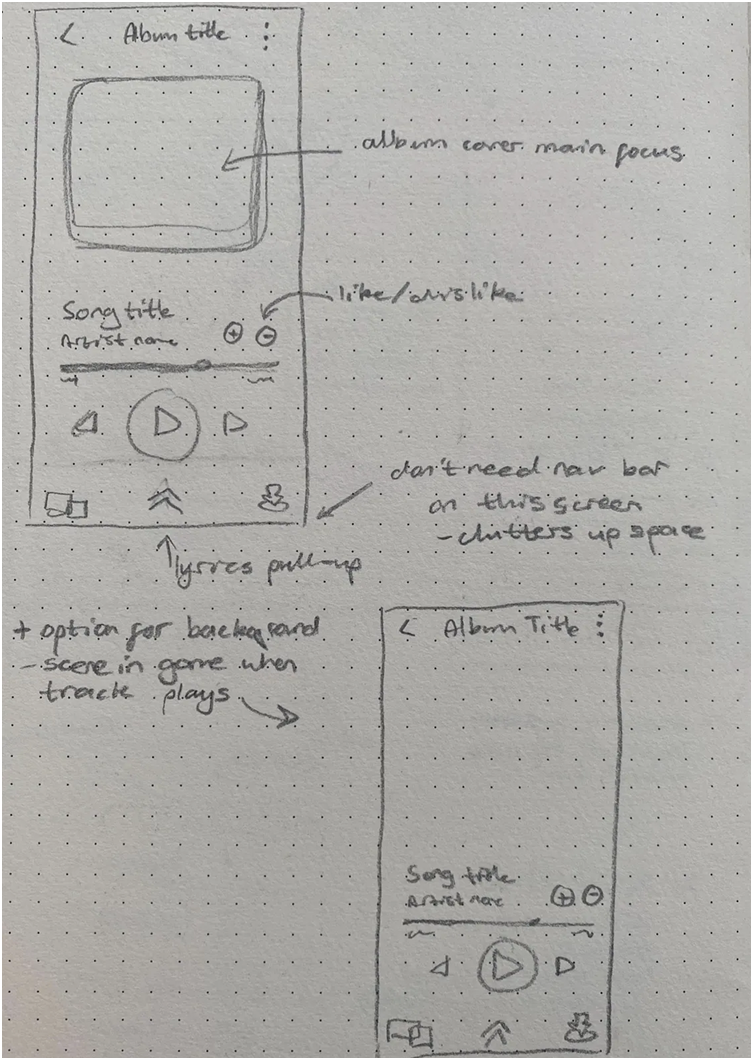 Album title
album cover main focus
like/dislike
Song title
Artist name
don't need nav bar
on this screen
- clutters up space
lyrics pull-up
+ option for background
- scene in game when
track plays
Album Title
Song title
Artist name